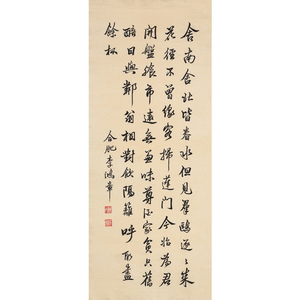 舍南舍北皆春水但見羣鷗來
花徑不曾緣客掃蓬門今始為君
開盤飱市遠無兼味尊酒家貧只舊
醅肯與鄰翁相對飲隔籬呼取盡
餘杯
合肥李鴻章